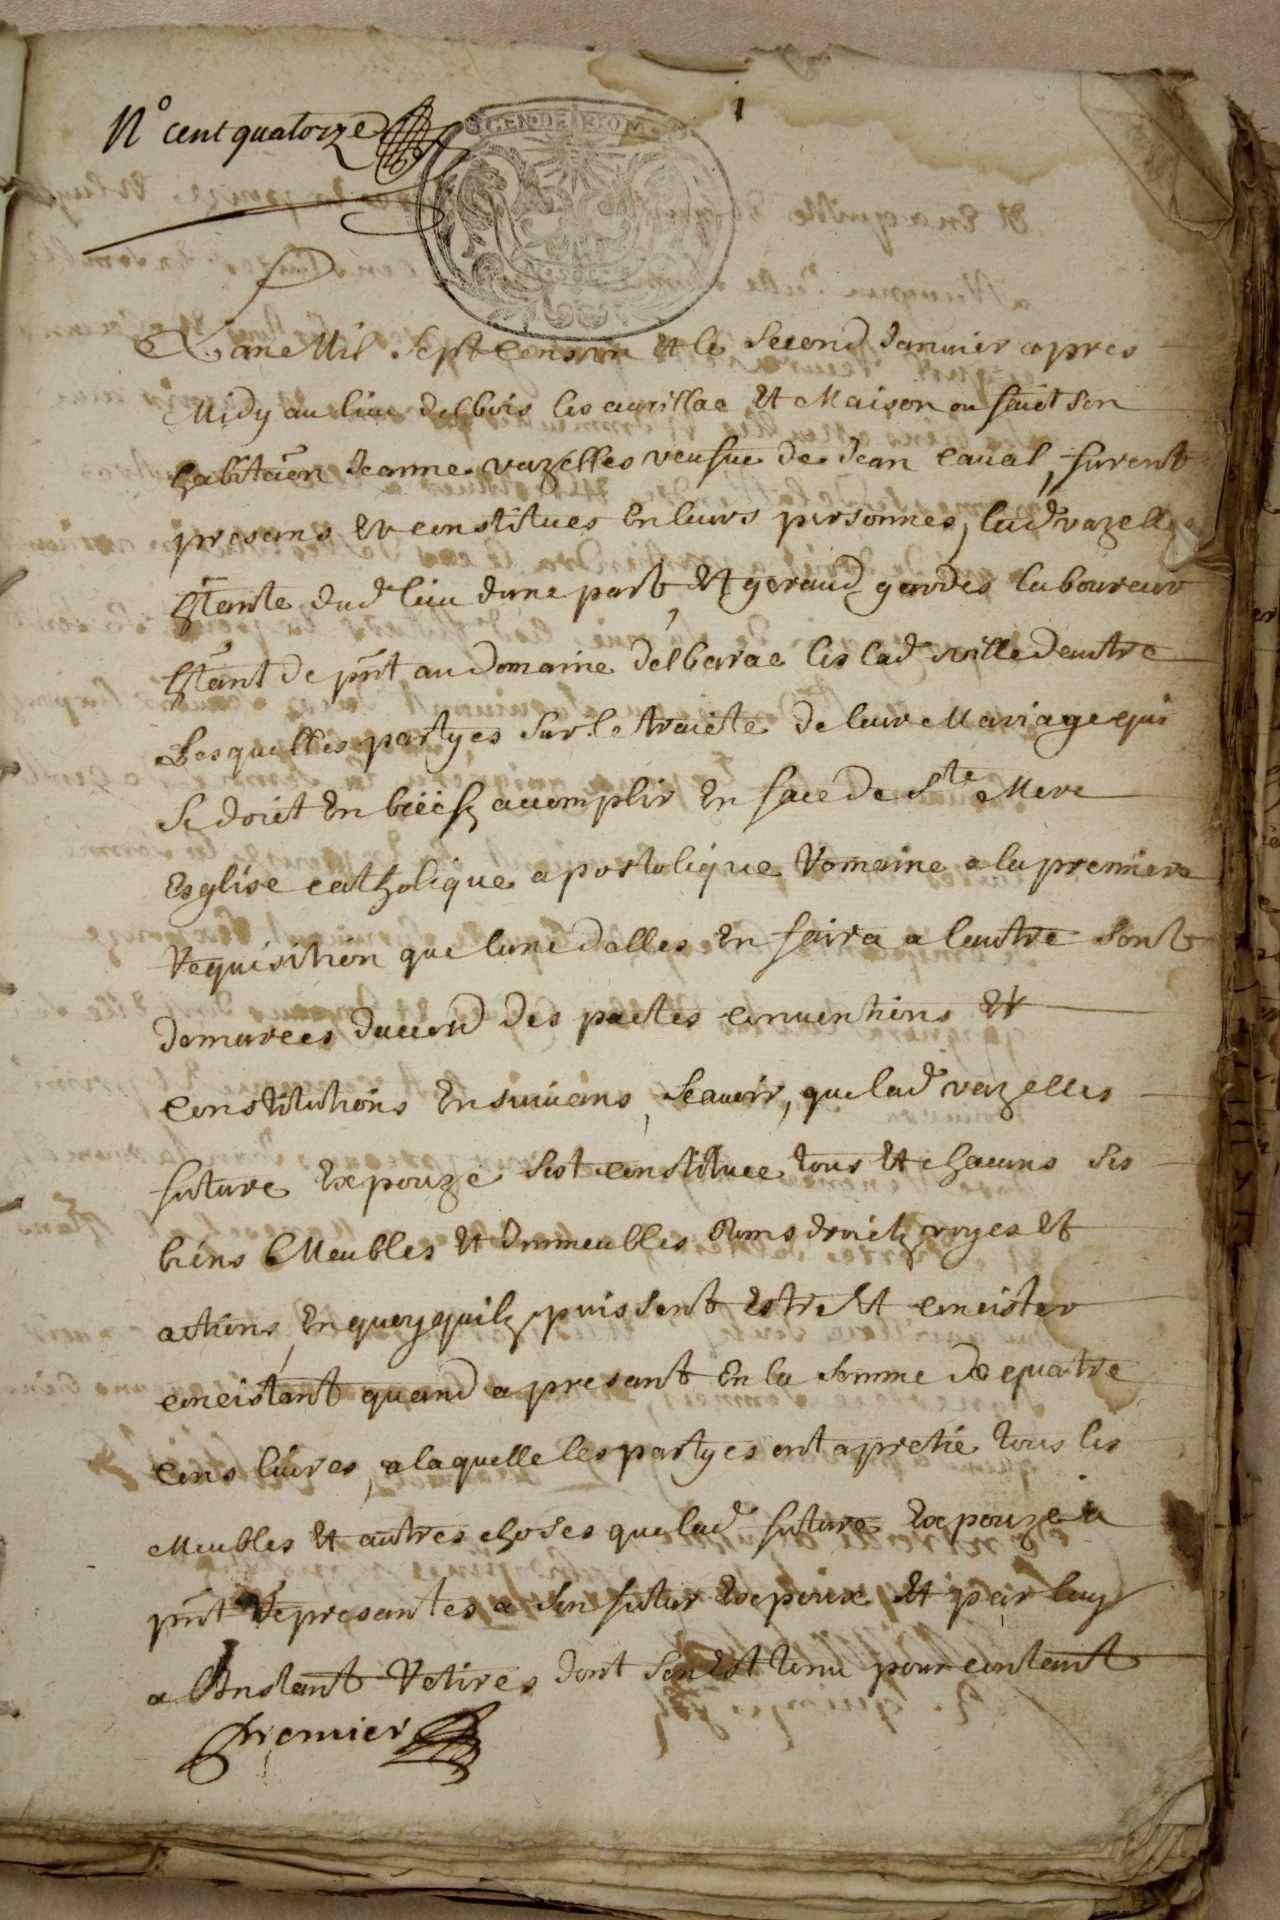 N° cent quatorze
1
GEN DE RIOM
L'an Mil Sept Cens un Et le Second Janvier apres
Midy au lieu delbois les aurillac, Et Maison ou faict son
habitaon Jeanne vazelles veufue de Jean Caual, furent
presens Et constitues En leurs personnes, lad vazelles
htante dud lieu dune part, Et geraud gardes laboureur
htant de pnt au domaine delbarac les lad ville dautre
Lesquelles partyes sur le traicte de leur Mariage qui
Se doict En brief accomplir En face de Ste Mere
Esglise catholique apostolique Romaine a la premiere
Requisition que lune delles En faira a lautre sont
demurees daccord des pactes conuentions Et
constitutions Ensuiuans, Scauoir, que lad vazelles
future Expouze sest constituee tous Et chacuns ses
biens Meubles Et Immeubles Noms droictz voyes Et
actions, En quoy quilz puissent Estre Et concister
concistant quand a presant En la Somme de quatre
cens liures, a laquelle les partyes ont apretie tous les
Meubles Et autres choses que lad future Expouze a
pnt Represantes a Son futur Expoux Et par luy
a l'Instant Retires dont Sen Est tenu pour contant
Premier